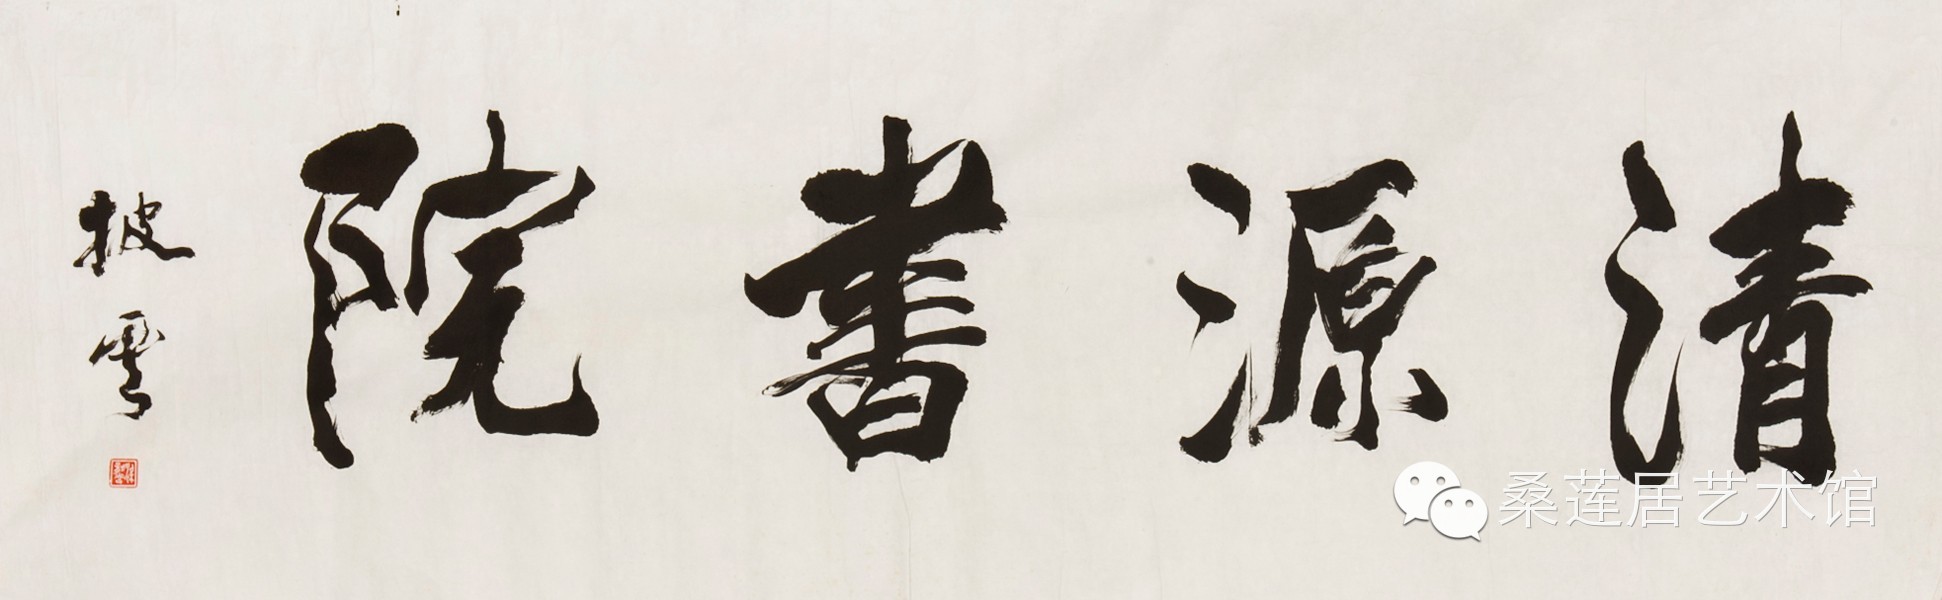 清源書院
披雲
桑莲居艺术馆